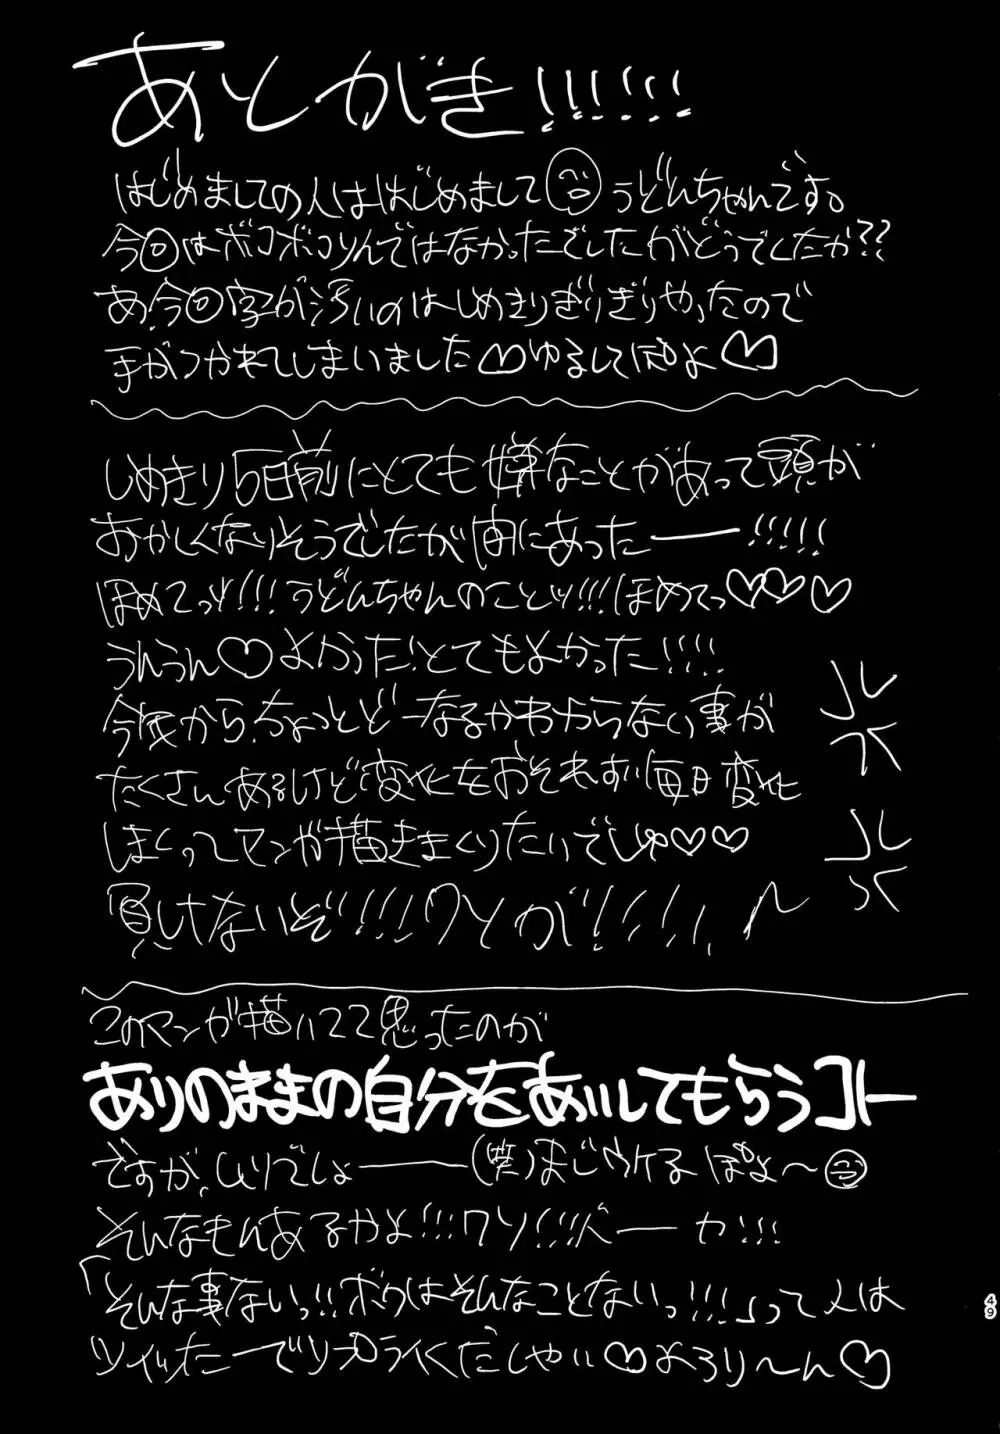 あとがき!!!!!!
はじめましての人ははじめまして うどんちゃんです。
今回はボコボコりんではなかったでしたがどうでしたか??
あ、今回字が汚いのはしめきりぎりぎりやったので
手がつかれてしまいました♡ゆるしてぽよ♡
しめきり5日前にとても嫌なことがあって頭が
おかしくなりそうでしたが間にあったー!!!!!
ほめてっッ!!!うどんちゃんのことッ!!!ほめてっ♡♡♡
うんうん♡よかった!とてもよかった!!!!
今後から、ちょっとどーなるかわからない事が
たくさんあるけど変化をおそれず毎日変化
しまくってマンガ描きまくりたいでしゅ♡♡
負けないぞ!!!!クソが!!!!!
このマンガ描いてて思ったのが
ありのままの自分をあいしてもらうコトー
ですが、ムリでしょー(笑)まじウケるぽよ〜
そんなもんあるかよ!!!クソ!!!バーカ!!!
「そんな事ないっ!!ボクはそんなことないっ!!!」って人は
ツイッターでリプライくだしゃい♡よろり〜ん♡
49